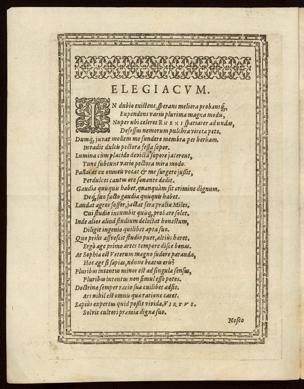 ELEGIACVM.
IN dubio existens, sperans meliora probansq́;,
Expendens varia plurima magna modo,
Nuper ubi celeres RHENI spatiarer ad undas,
Defessus nemorum pulchra vireta peto.
Dumq́; iuvat mollem me fundere membra per herbam.
Invadit dulci pectora fessa sopor.
Lumina cum placido devicta sopore iacerent,
Tunc subeunt vario pectora mira modo.
Pallas et ex
Perdulces cantu ore sonante dedit.
Gaudia quisquis habet, quanquam sit crimine dignum.
Deq́; suo facto gaudia quisquis habet.
Laudat agros fossor, iactat sera praelia Miles,
Cui studio incumbit quisq́; probare solet.
Inde alios aliud studium delectat honestum,
Diligit ingenio quilibet apta suo.
Quo prolis assuescit studio puer, altius haeret,
Ergo age primo artes tempore disce bonas.
At Sophia est Veterum magno sudore paranda,
Hoc age si sapias, ndonu beatus eris
Pluribus intentus minor est ad singula sensus,
Pluribus intentus non simul esse potes.
Doctrina semper ratio sua cuilibet adsit.
Ars nihil est omnis quae ratione caret.
Sapius expertus quid possit vivida, VIRTUS.
Solvit cultori praemia digna suo.
Nosco